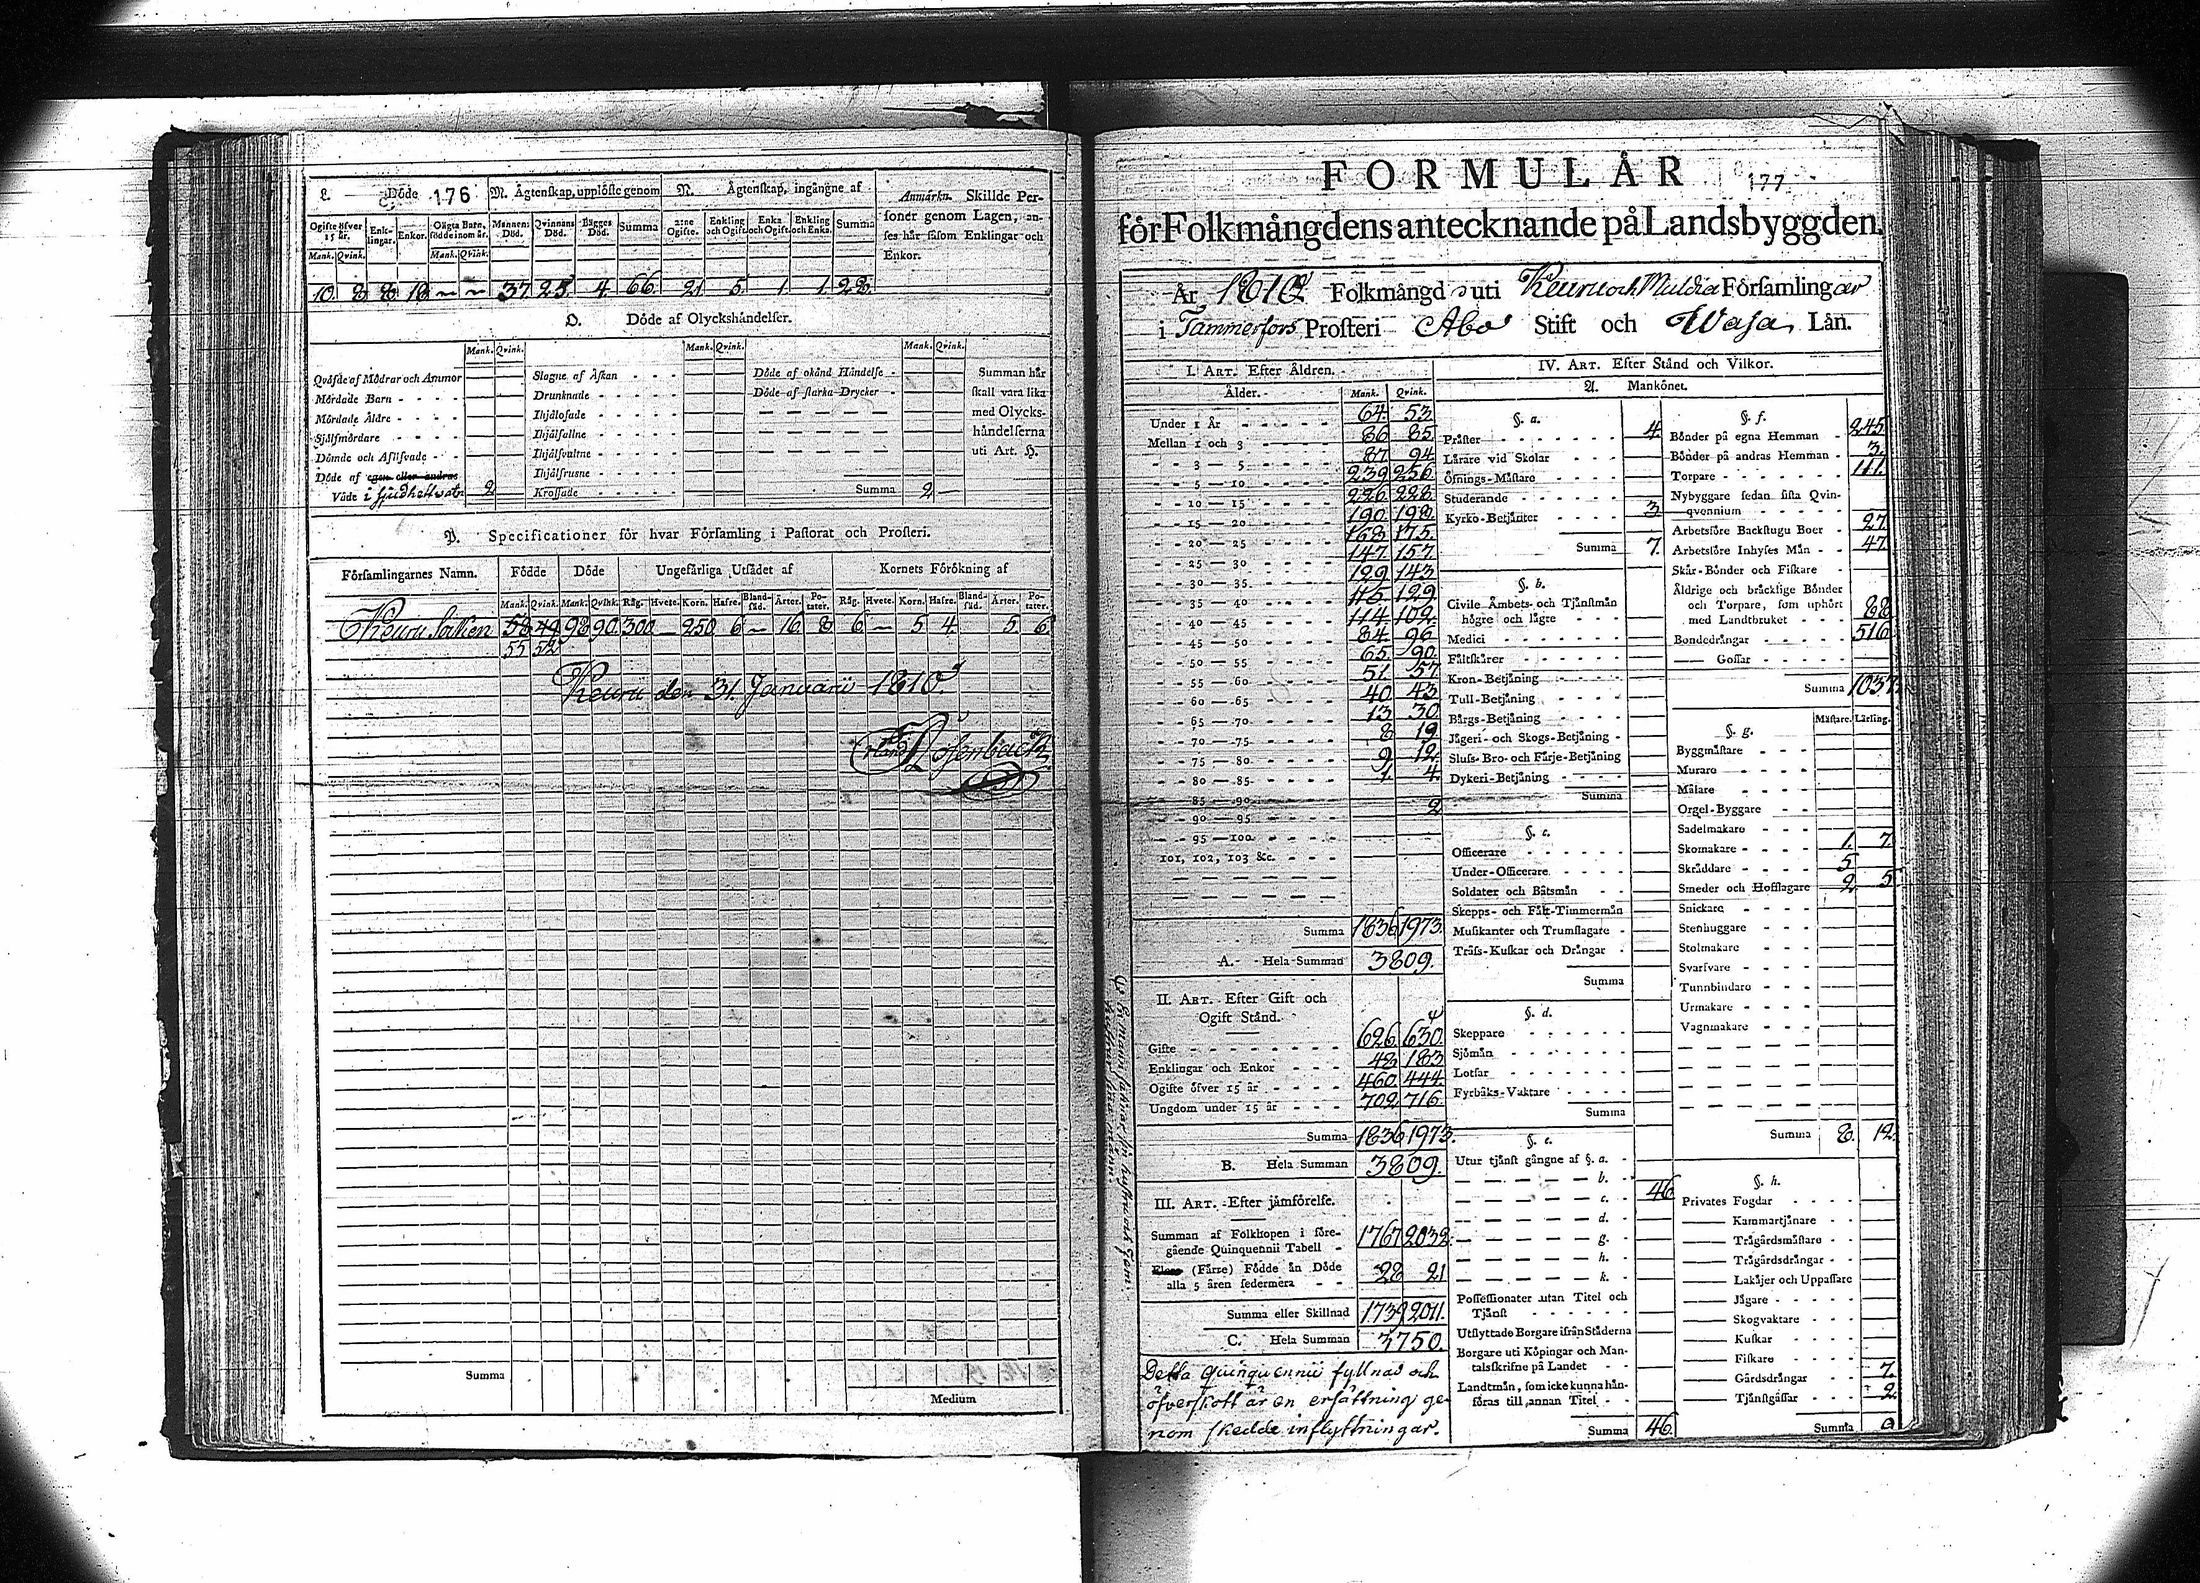 L. Döde 176 M. Ågtenskap, upplöste genom N. Ågtenskap, ingångne af Anmärkn. Skillde Per-
soner genom Lagen, an-
ses här såsom Enklingar och
Enkor.
Ogifte öfver 15 år. Enk-lingar. Enkor. Oägta Barn, födde inom år. Mannens Död. Qvinnans Död. Bägges Död. Summa 2:ne Ogifte. Enkling och Ogift. Enka och Ogift. Enkling och Enka. Summa
Mank. Qvink. Mank. Qvink.
10. 8 8 18 — — 37 25 4. 66. 21 5. 1. 1. 28.
O. Döde af Olyckshändelser.
Mank. Qvink. Mank. Qvink. Mank. Qvink.
Qväfde af Mödrar och Ammor
Mördade Barn
Mördade Äldre
Sjelfmördare
Dömde och Aflifvade
Döde af egen eller andras
Våde i sjudhett vatn 2
Slagne af Åskan
Drunknade
Ihjälosade
Ihjälfallne
Ihjälsvultne
Ihjälfrusne
Krossade
Döde af okänd Händelse
Döde af starka Drycker
Summa 2 —
Summan här
skall vara lika
med Olycks-
händelserna
uti Art. H.
P. Specificationer för hvar Församling i Pastorat och Prosteri.
Församlingarnes Namn. Födde Döde Ungefärliga Utsädet af Kornets Förökning af
Mank. Qvink. Mank. Qvink. Råg. Hvete. Korn. Hafre. Bland-säd. Ärter. Po-tater. Råg. Hvete. Korn. Hafre. Bland-säd. Ärter. Po-tater.
Keuru Socken 58 49 98 90 300 — 250 6 — 16 8 6 — 5 4 5. 6
55 52
Keuru den 31. Januarii 1810.
Rosenback
Summa
Medium
FORMULÅR
177
för Folkmångdens antecknande på Landsbyggden.
År 1810 Folkmängd uti Keuru och Muldia Församlingar
i Tammerfors Prosteri Abo Stift och Wasa Län.
I. ART. Efter Åldren.
Ålder. Mank. Qvink.
Under 1 År 64. 53.
Mellan 1 och 3 86 85.
3 — 5 87. 94
5 — 10 239 256
10 — 15 226 228
15 — 20 190 198
20 — 25 168 175.
25 — 30 147. 157.
30 — 35 129 143
35 — 40 115. 129
40 — 45 114. 102.
45 — 50 84. 96
50 — 55 65. 90.
55 — 60 51. 57
60 — 65 40. 43
65 — 70 13 30
70 — 75 8 19
75 — 80 9. 12
80 — 85 1. 4.
85 — 90 2
90 — 95
95 — 100
101, 102, 103 &c.
Summa 1836 1973.
A. Hela Summan 3809.
II. ART. Efter Gift och
Ogift Stånd.
Gifte 626. 630.
Enklingar och Enkor 48 183
Ogifte öfver 15 år 460. 444.
Ungdom under 15 år 702 716.
Summa 1836 1973.
B. Hela Summan 3809.
III. ART. Efter jämförelse.
Summan af Folkhopen i före-
gående Quinquennii Tabell 1767 2032
(Färre) Födde än Döde
alla 5 åren sedermera 28 21
Summa eller Skillnad 1739 2011.
C. Hela Summan 3750.
Detta Quinquennii fyllnad och
öfverskott är en ersättning ge-
nom skedde inflyttningar.
IV. ART. Efter Stånd och Vilkor.
A. Mankönet.
§. a.
Präster 4.
Lärare vid Skolar
Öfnings-Mästare
Studerande
Kyrko-Betjänter 3
Summa 7.
§. b.
Civile Ämbets- och Tjänstmän
högre och lägre
Medici
Fältskärer
Kron-Betjäning
Tull-Betjäning
Bärgs-Betjäning
Jägeri- och Skogs-Betjäning
Sluss- Bro- och Färje-Betjäning
Dykeri-Betjäning
Summa
§. c.
Officerare
Under-Officerare.
Soldater och Båtsmän
Skepps- och Fält-Timmermän
Musikanter och Trumslagare
Träss-Kuskar och Drängar
Summa
§. d.
Skeppare
Sjömän
Lotsar
Fyrbåks-Vaktare
Summa
§. e.
Utur tjänst gångne af §. a.
b.
c. 46
d.
g.
h.
k.
Possessionater utan Titel och
Tjänst
Utflyttade Borgare ifrån Städerna
Borgare uti Köpingar och Man-
talsskrifne på Landet
Landtmän, som icke kunna hän-
föras till annan Titel
Summa 46.
§. f.
Bönder på egna Hemman 245
Bönder på andras Hemman 3.
Torpare 111.
Nybyggare sedan sista Qvin-
qvennium
Arbetsföre Backstugu Boer 27
Arbetsföre Inhyses Män 47
Skär-Bönder och Fiskare
Åldrige och bräcklige Bönder
och Torpare, som uphört
med Landtbruket 88
Bondedrängar 516
Gossar
Summa 1037.
§. g. Mästare. Lärling.
Byggmästare
Murare
Målare
Orgel-Byggare
Sadelmakare
Skomakare 1. 7.
Skräddare 5
Smeder och Hofslagare 2 5
Snickare
Stenhuggare
Stolmakare
Svarfvare
Tunnbindare
Urmakare
Vagnmakare
Summa 8. 12.
§. h.
Privates Fogdar
Kammartjänare
Trägårdsmästare
Trägårdsdrängar
Lakäjer och Uppassare
Jägare
Skogvaktare
Kuskar
Fiskare
Gårdsdrängar 7.
Tjänstgåssar 2.
Summa 9